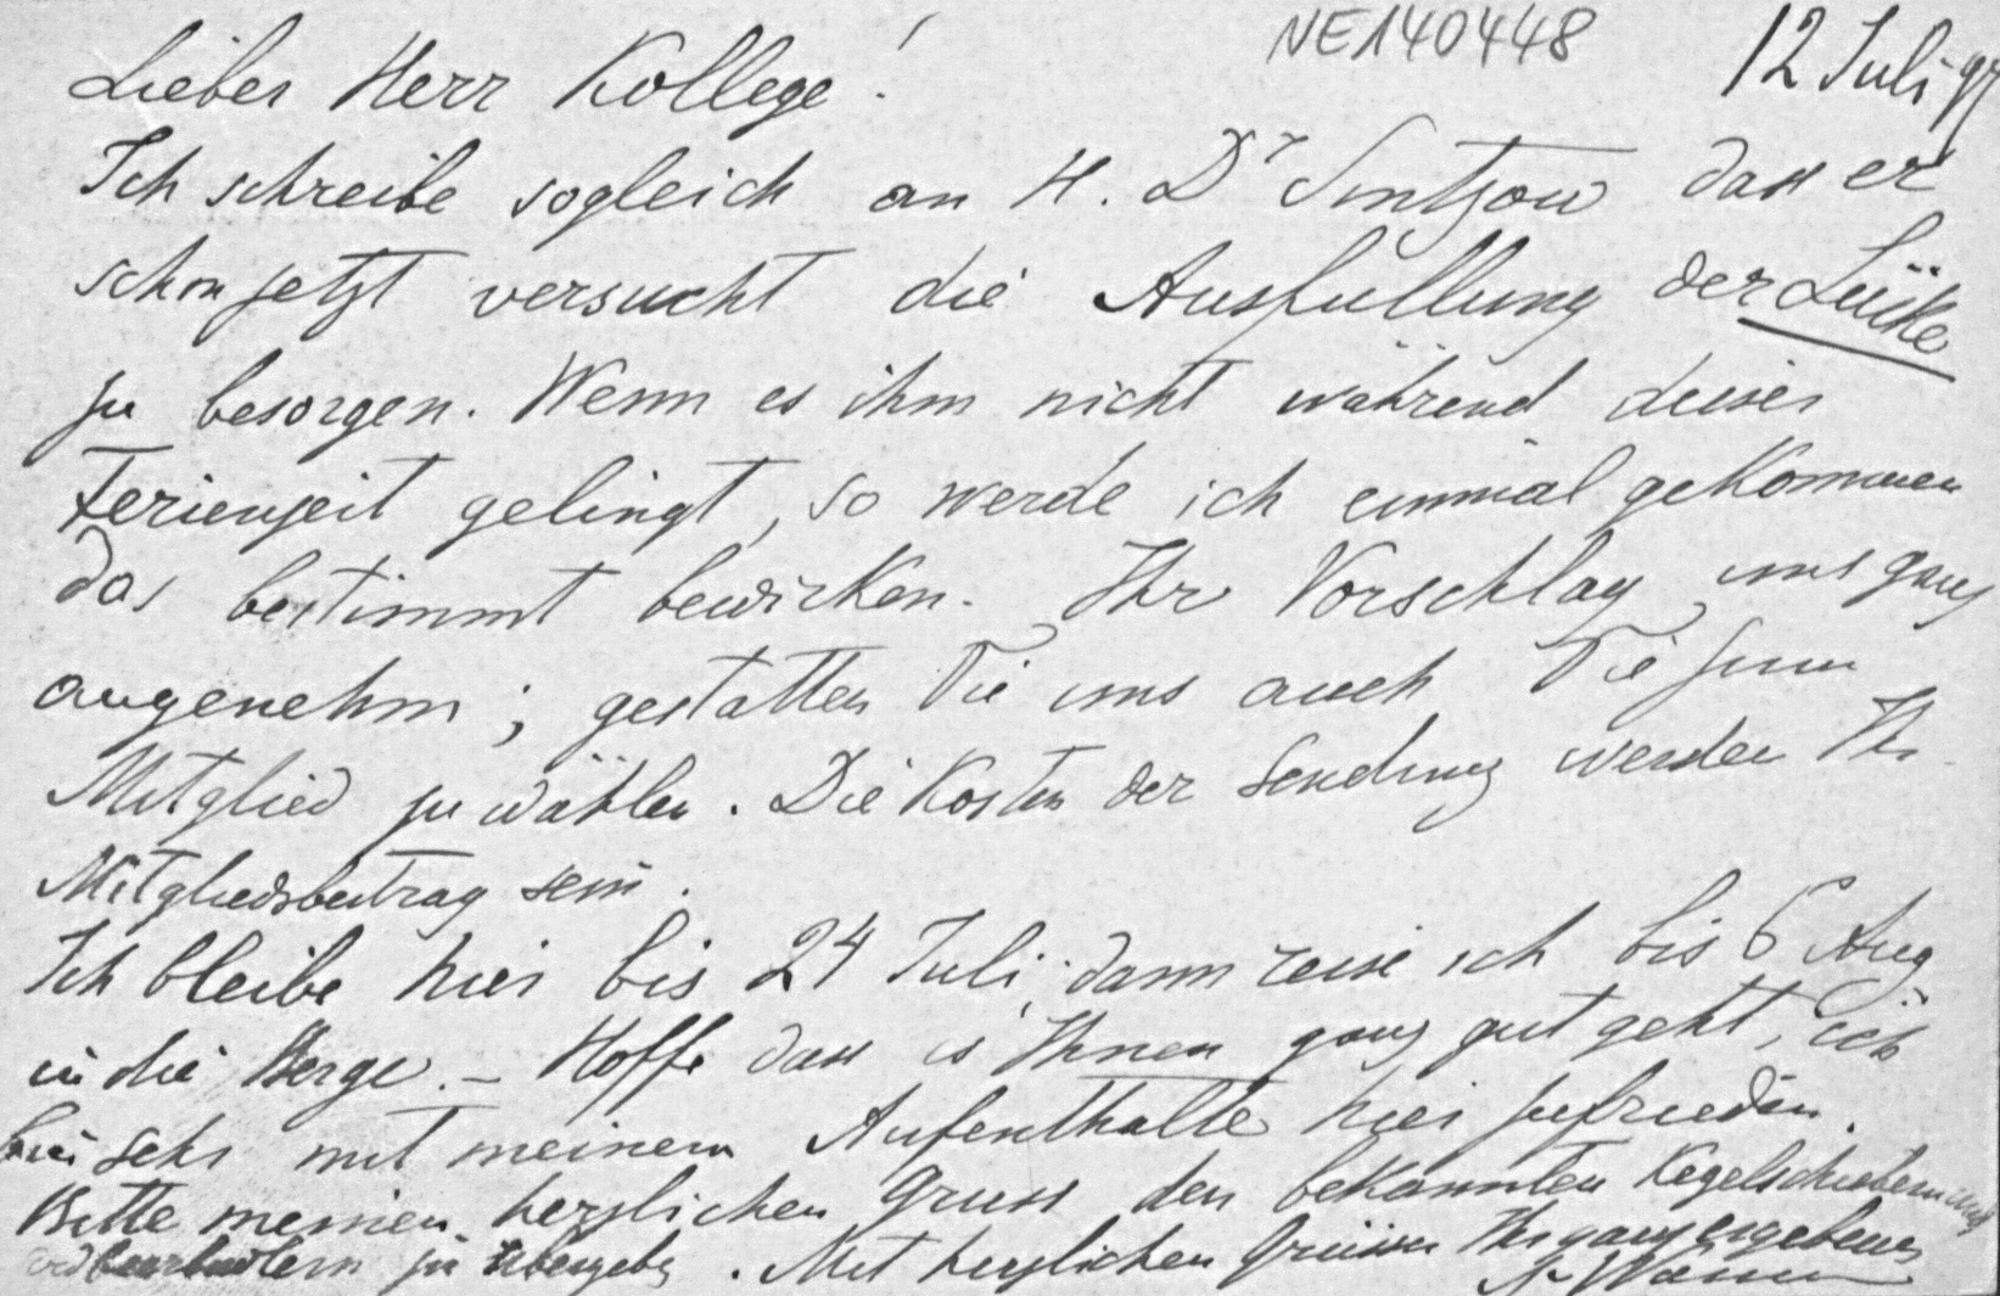 NE140448
12 Juli 97
Lieber Herr Kollege!
Ich schreibe sogleich an H. Dr Sintzow dass er
schon jetzt versucht die Ausfullung der Lücke
zu besorgen. Wenn es ihm nicht während dieser
Ferienzeit gelingt, so werde ich einmal gekommen
das bestimmt bewirken. Ihr Vorschlag uns ganz
angenehm; gestatten Sie uns auch Sie zum
Mitglied zu wählen. Die Kosten der Sendung werden Ihr
Mitgliedsbeitrag sein.
Ich bleibe hier bis 24 Juli, dann reise ich bis 6 Aug.
in die Berge. – Hoffe dass es Ihnen ganz gut geht, ich
bin sehr mit meinem Aufenthalte hier zufrieden.
Bitte meinen herzlichen Gruss den bekannten Kegelschiebern und
zu übergeben. Mit herzlichen Grüssen Ihr ganz ergebener